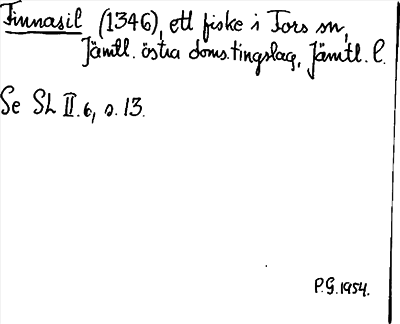 Finnasil (1346), ett fiske i Fors sn,
Jämtl. östra doms.tingslag, Jämtl. l.
Se SL II.6, s. 13.
P.G. 1954.